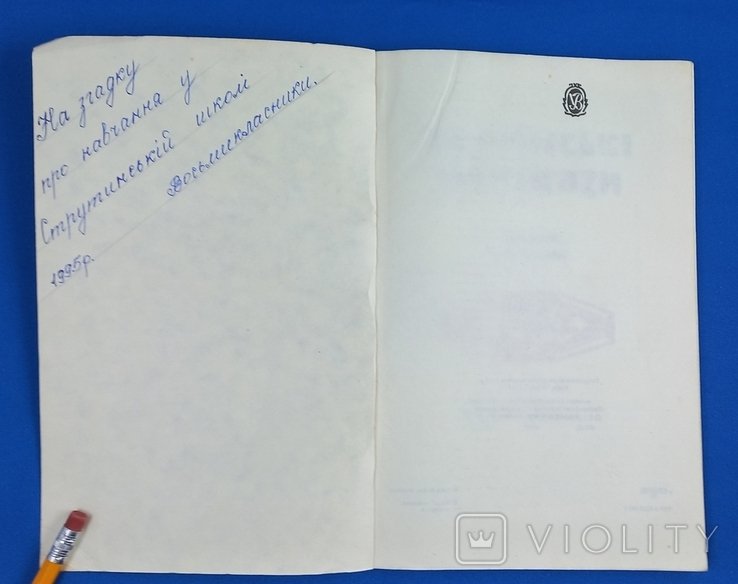 На згадку
про навчання у
Струтинській школі
Восьмикласники.
1995р.
VIOLITY